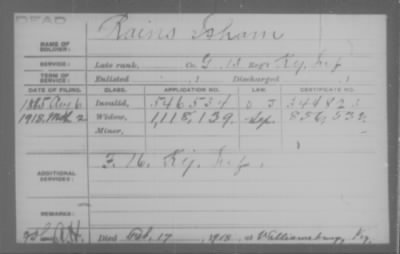 DEAD
NAME OF SOLDIER: Rains Isham
SERVICE: Late rank, Co. G, 13 Reg't Ky. Inf
TERM OF SERVICE: Enlisted , 1 Discharged , 1
DATE OF FILING. CLASS. APPLICATION NO. LAW. CERTIFICATE NO.
1885 Aug 6 Invalid, 546534 344823
1918, Mch 2 Widow, 1,118,139. 856,532,
Minor,
ADDITIONAL SERVICES: F. 16. Ky. Inf.
REMARKS:
Died Feb. 17, 1918, at Williamsburg, Ky.